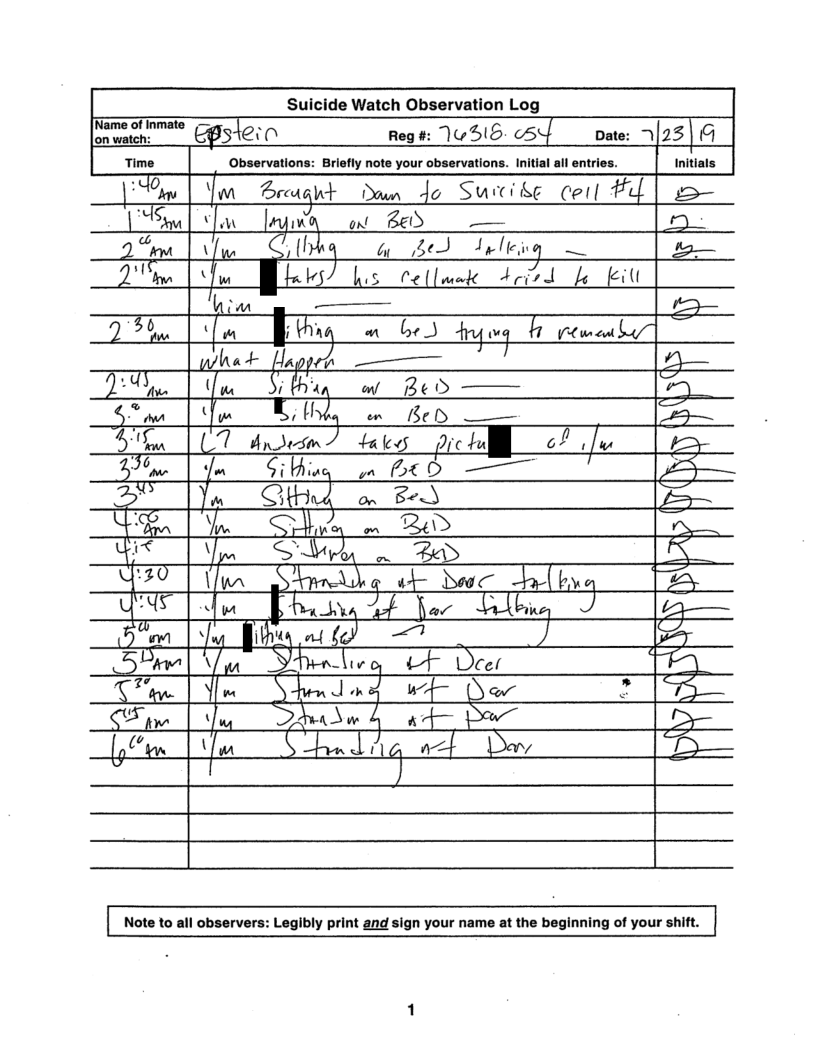 Suicide Watch Observation Log
Name of Inmate on watch: Epstein Reg #: 76318-054 Date: 7/23/19
Time Observations: Briefly note your observations. Initial all entries. Initials
1:40 AM I/m Brought Down to Suicide cell #4
1:45 AM I/m laying on BED
2:00 AM I/m Sitting on Bed talking
2:15 AM I/m tates his cellmate tried to kill
him
2:30 AM I/m itting on bed trying to remember
what Happen
2:45 AM I/m Sitting on BED
3:00 AM I/m Sitting on BED
3:15 AM LT Anderson takes pictu of I/m
3:30 AM I/m Sitting on BED
3:45 I/m Sitting on Bed
4:00 AM I/m Sitting on BED
4:15 I/m Sitting on BED
4:30 I/m Standing at Door talking
4:45 I/m Standing at Door talking
5:00 AM I/m itting on Bed
5:15 AM I/m Standing at Door
5:30 AM I/m Standing at Door
AM I/m Standing at Door
6:00 AM I/m Standing at Door
Note to all observers: Legibly print and sign your name at the beginning of your shift.
1